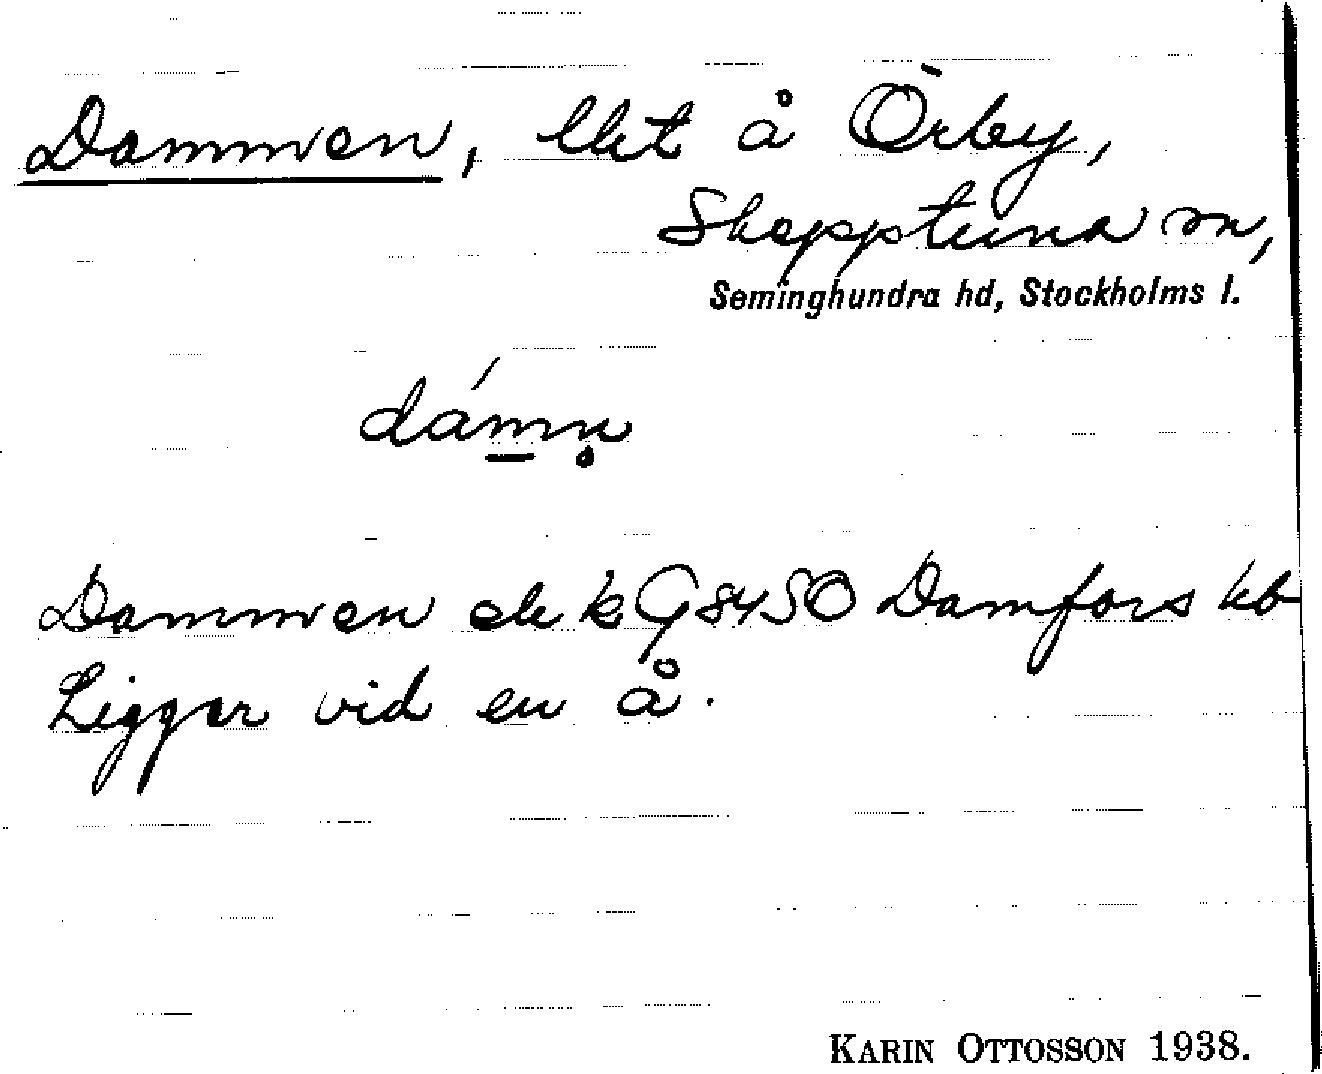 Dammen, lht å Örby,
Skepptuna sn,
Seminghundra hd, Stockholms l.
dámn̥
Dammen ek k G 84 SO Damfors hb
Ligger vid en å.
KARIN OTTOSSON 1938.